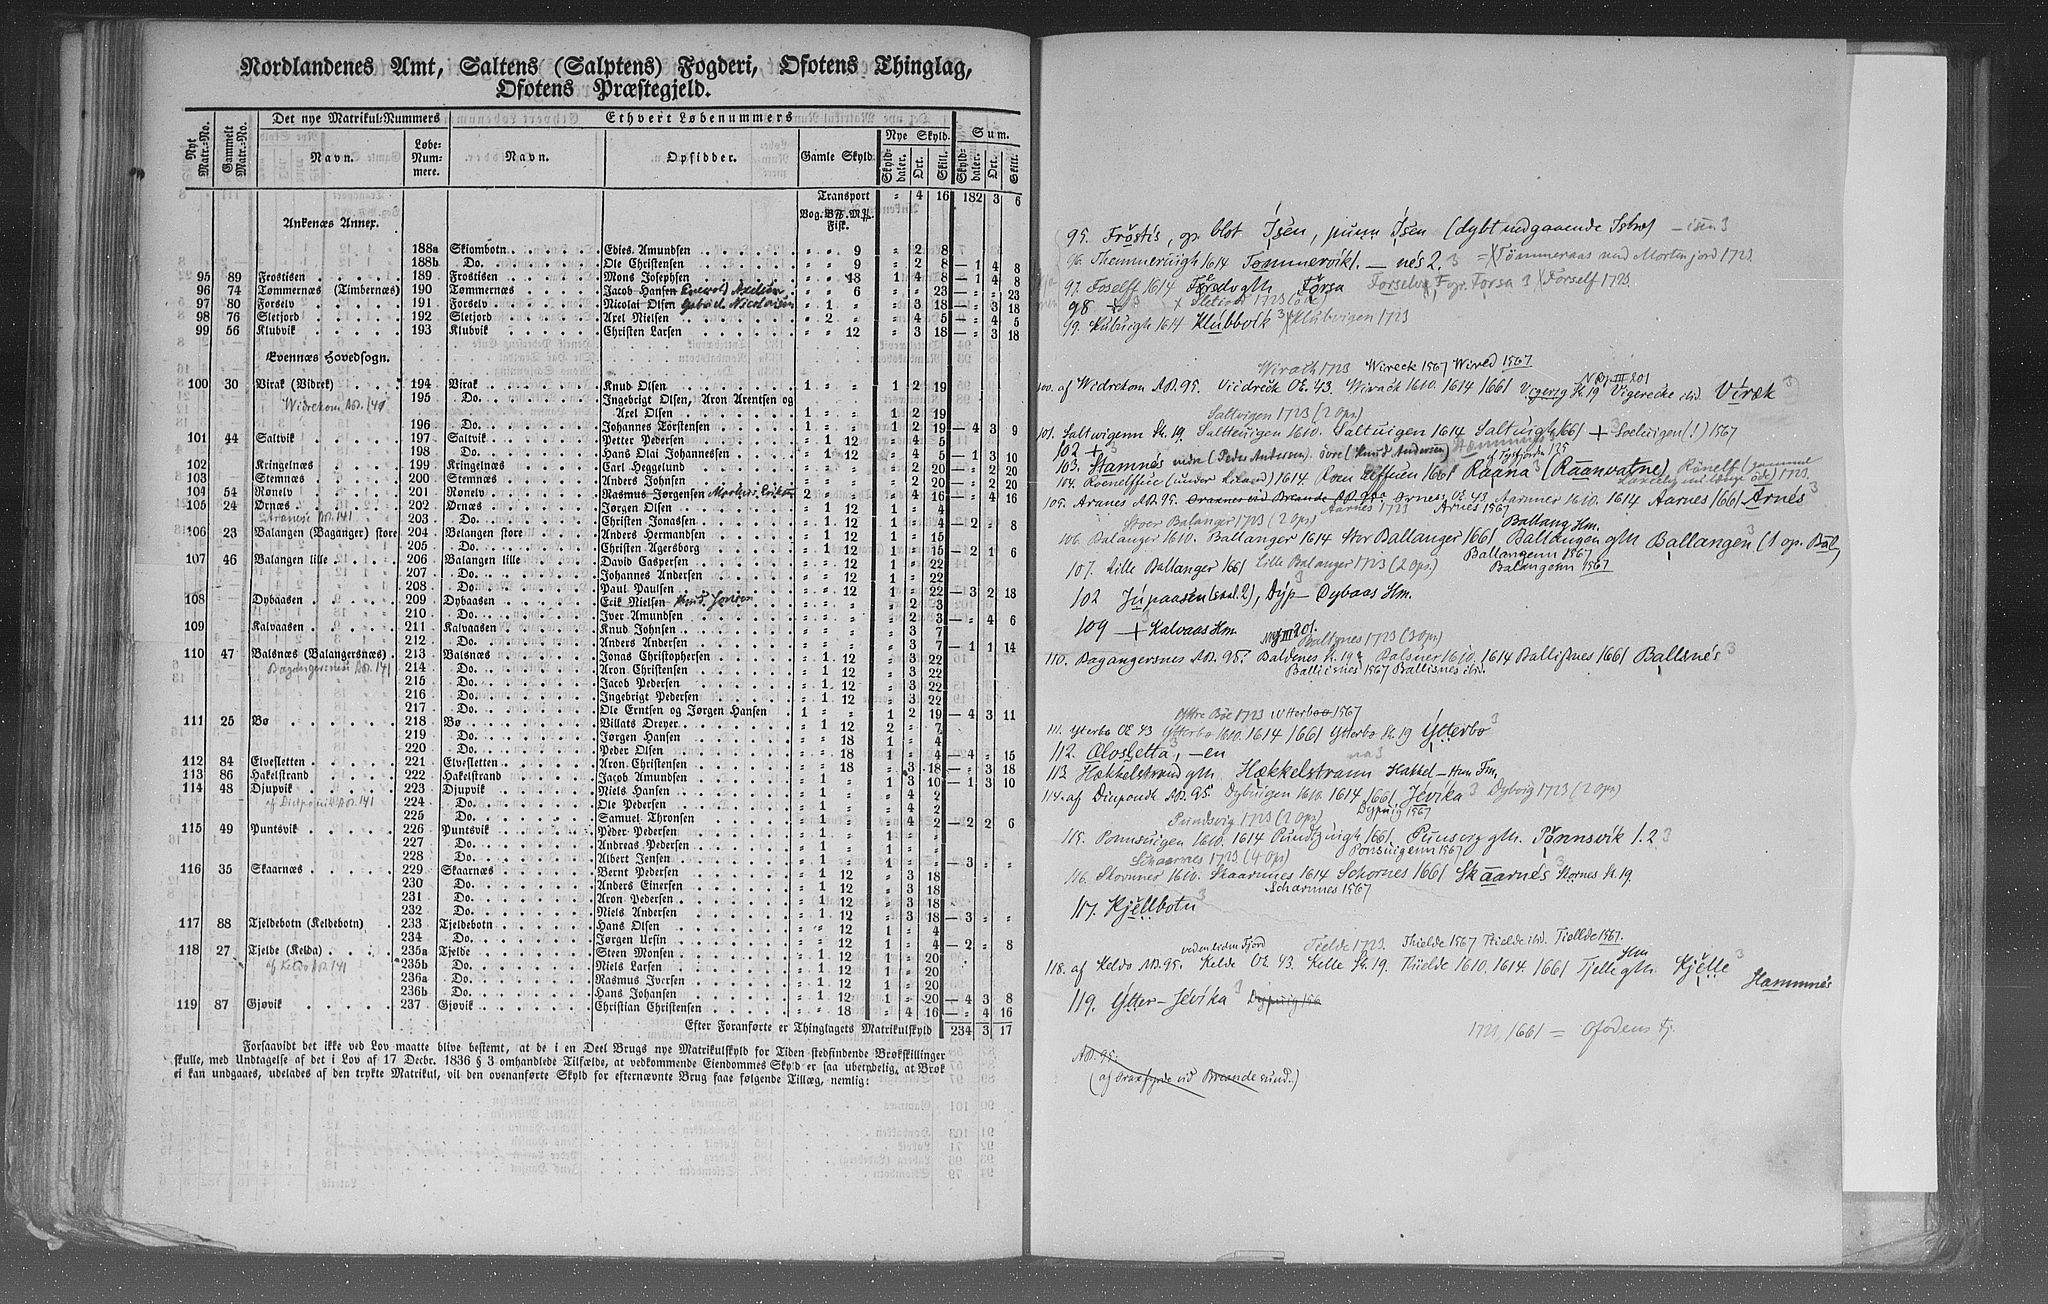 Nordlandenes Amt, Saltens (Salptens) Fogderi, Ofotens Thinglag,
Ofotens Præstegjeld.
Nye Matr.-No. Gammelt Matr.-No. Det nye Matrikul-Nummers Ethvert Løbenummers
Navn. Løbe-Num-mere. Navn. Opsidder. Gamle Skyld. Nye Skyld. Sum.
Skyld-daler. Ort. Skill. Skyld-daler. Ort. Skill.
Transport = 4 16 182 3 6
Ankenæs Annex. Vog. B℔. M℔. Fisk.
188a Skjombotn Edies Amundsen = = 9 = 2 8
188b Do. Ole Christensen = = 9 = 2 8 — 1 4 8
95 89 Frostisen 189 Frostisen Mons Josephsen = = 18 1 4 8 — 1 4 8
96 74 Tømmernæs (Timbernæs) 190 Tømmernæs Jacob Hansen = = 6 = = 23 — = = 23
97 80 Forselv 191 Forselv Nicolai Olsen Gabriel Nicolaisen = 1 = = 3 18 — = 3 18
98 76 Sletjord 192 Sletjord Axel Nielsen = 2 = = 4 5 — = 4 5
99 56 Klubvik 193 Klubvik Christen Larsen = = 12 = 3 18 — = 3 18
Evennæs Hovedsogn.
100 30 Virak (Vidrek) 194 Virak Knud Olsen 1 = = 1 2 19
Widrekom AB. 141 195 Do. Ingebrigt Olsen, Aron Arentsen og
Axel Olsen 1 = = 1 2 19
196 Do. Johannes Torstensen 1 = = 1 2 19 — 4 3 9
101 44 Saltvik 197 Saltvik Petter Pedersen = 1 12 = 4 5
198 Do. Hans Olai Johannessen = 1 12 = 4 5 — 1 3 10
102 Kringelnæs 199 Kringelnæs Carl Heggelund = = = = 2 20 — = 2 20
103 Stemnæs 200 Stemnæs Anders Johnsen = = = = 2 20 — = 2 20
104 54 Rønelv 201 Rønelv Rasmus Jørgensen 2 = = = 4 16 — = 4 16
105 24 Ornæs 202 Ornæs Jørgen Olsen = 1 12 1 = 4
Aranese AB. 141 203 Do. Christen Jonassen = 1 12 1 = 4 — 2 = 8
106 23 Balangen (Baganger) store 204 Belangen store Anders Hermandsen = 1 12 1 = 15
205 Do. Christen Agersborg = 1 12 1 = 15 — 2 1 6
107 46 Balangen lille 206 Balangen lille David Caspersen = = 12 1 = 22
207 Do. Johannes Andersen = = 12 1 = 22
208 Do. Paul Paulsen = = 12 1 = 22 — 3 2 18
108 Dybaasen 209 Dybaasen Erik Nielsen = = = = 2 3
210 Do. Iver Amundsen = = = = 2 3 — = 4 6
109 Kalvaasen 211 Kalvaasen Knud Johnsen = = = = 3 7
212 Do. Anders Andersen = = = = 3 7 — 1 1 14
110 47 Balsnæs (Balangersnæs) 213 Balsnæs Jonas Christophersen = 1 12 = 3 22
Bagangersnesi AB. 141 214 Do. Aron Christensen = 1 12 = 3 22
215 Do. Jacob Pedersen = 1 12 = 3 22
216 Do. Ingebrigt Pedersen = 1 12 = 3 22
217 Do. Ole Erntsen og Jørgen Hansen 1 = = 1 2 19 — 4 3 11
111 25 Bø 218 Bø Villats Dreyer = 1 12 2 = 7
219 Do. Jørgen Hansen = = 18 1 = 4
220 Do. Peder Olsen = = 18 1 = 4 — 4 = 15
112 84 Elvesletten 221 Elvesletten Aron Christensen = = 18 = 3 18 — = 3 18
113 86 Hakelstrand 222 Hakelstrand Jacob Amundsen = 1 = 1 3 10 — 1 3 10
114 48 Djupvik 223 Djupvik Niels Hansen = 1 = = 4 2
224 Do. Ole Pedersen = 1 = = 4 2
225 Do. Samuel Thronsen = 1 = = 4 2 — 2 2 6
115 49 Puntsvik 226 Puntsvik Peder Pedersen = 1 = 1 = =
227 Do. Andreas Pedersen = 1 = 1 = =
228 Do. Albert Jensen = 1 = 1 = = — 3 = =
116 35 Skaarnæs 229 Skaarnæs Bernt Pedersen = 1 12 = 3 18
230 Do. Anders Einersen = 1 12 = 3 18
231 Do. Aron Pedersen = 1 12 = 3 18
232 Do. Niels Andersen = 1 12 = 3 18 — 3 = =
117 88 Tjeldebotn (Keldebotn) 233 Tjeldebotn Hans Olsen = 1 12 1 = 4
234 Do. Jørgen Ursin = 1 12 1 = 4 — 2 = 8
118 27 Tjelde (Kelda) 235a Tjelde Steen Monsen = 1 12 1 = 20
af Keldo AB. 141 235b Do. Niels Larsen = 1 12 1 = 20
236a Do. Rasmus Iversen = 1 12 1 = 20
236b Do. Hans Johansen = 1 12 1 = 20 — 4 3 8
119 87 Gjøvik 237 Gjøvik Christian Christensen = = 18 = 4 16 — = 4 16
Efter Foranførte er Thinglagets Matrikulskyld 234 3 17
Forsaavidt det ikke ved Lov maatte blive bestemt, at de i en Deel Brugs nye Matrikulskyld for Tiden stedfindende Brøkskillinger
skulle, med Undtagelse af det i Lov af 17 Decbr. 1836 § 3 omhandlede Tilfælde, at vedkommende Eiendommes Skyld er saa ubetydelig, at Brøk
ei kan undgaaes, udelades af den trykte Matrikul, vil den ovenanførte Skyld for efternævnte Brug faae følgende Tillæg, nemlig:
95. Fröstis, gp. blot Isen, Isen (dybtindgaaende Isbræ) — isen 3
96. Themmeruigh 1614 Tømmervik 1. — nés 2. 3 = X Tømmeraas und Mortenfjord 1723.
97. Foselff 1614 gm Forsa Forselv, Fgr. Forsa 3 X Forself 1723.
98 + 3
99. Kluburgh 1614 Klubbvik 3 X Klubvigen 1723
Wirach 1723 Wireck 1567 Wireld 1567
100. af Widrekom AB. 95. Viidreck OE. 43. Wirach 1610. 1614 1661 Vigerig St. 19 Vigerecke ibid. Viræk
Saltvigen 1723 (2 opr.)
101. Saltwigenn St. 19. Saltteuigen 1610. Saltuigen 1614 Saltuigh 1661 + Soeluigen (!) 1567
102 + 3
103. Stamnés nedre (Peder Andersen). övre (Knud Andersen)
104. Roenelffue (under Lound) 1614 Roen elffuen 1661 Raana 3 (Raanvatne) Rönelf
105. Aranes AB. 95. Ornes OE 43 Aarnner 1610. 1614 Aarnes 1661 Arnés 3
Stoer Balanger 1723 (2 opr) Aarnes 1723 Arnes 1567
106. Balanger 1610. Ballanger 1614 Stor Ballanger 1661 Ballangen gm Ballangen (1 op. Bal
107. Lille Ballanger 1661 Lille Balanger 1723 (2 opr.) Ballangenn 1567
Balangenn 1567
102 Júpaasen (skal. 2), Dýp — Dybaas Hm.
109 + Kalvaas Hm.
Ballsnes 1723 (3 opr)
110. Bagangersnes AB. 95. Baldenes St. 19 Balsner 1610. 1614 Ballisnes 1661 Ballsnés 3
Ballicnes 1567 Ballisnes ibid.
Yttre Böe 1723 Wtterboo 1567
111. Ytterbo OE 43 Ytterbo 1610. 1614 1661 Ytterbo St. 19 Ytterbo 3
112. — en
113 Hækkelstrand gm Hækkelstrann Hakkel — Hm Fm.
114. af Diuponde AB. 95. Dybuigen 1610. 1614 1661. Jevika 3 Dybvig 1723 (2 opr)
Pundsvig 1723 (2 opr) Dypuig 1567
115. Ponnsuigen 1610. 1614 Pundzuigh 1661 Punsvig gm. Pönnsvik 1. 2 3
Schaarnes 1723 (4 opr) Ponsuigenn 1567
116. Skornner 1610. Skaarnnes 1614 Schornes 1661 Skaarnés 3 Skornes St. 19.
Scharnnes 1567
117. Kjellbotn 3
ved en liden Fjord Tielde 1723. Thielde 1567 Thielde ibid. Tiellde 1567.
118. af Keldo AB. 95. Kelde OE. 43. Kelle St. 19. Thielde 1610. 1614. 1661 Tjelle gm. Kjelle 3
Hammnés
119. Ytter — Jevika 3 Dypuig 156
1723, 1661 = Ofodens Fj.
AB. 95.
(af Oraxfyrde vid Breande sund..)